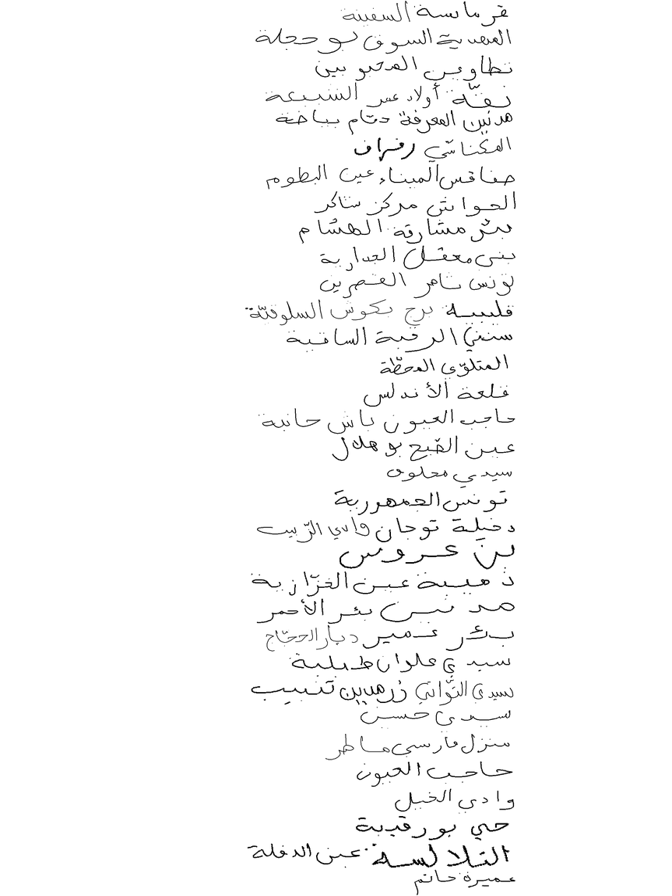 قرماسة السفينة
المهدية السوق بوحجلة
تطاوين المحبوبين
نقّة أولاد عمر السبعة
مدنين المعرفة حمّام بياضة
المكناسي رفراف
صفاقس الميناء عين البطوم
الحواش مركز شاكر
بئر مشارقة الهشام
بني معقل الجدارية
تونس ثامر القصرين
قليبية برج بكوش السلوقيّة
سنني الرقبة الساقية
المتلوّي المحطّة
قلعة الأندلس
حاجب العيون باش حانبة
عين القيح بوهلال
سيدي مخلوف
تونس الجمهورية
دخيلة توجان وادي الزيت
بن عروس
ذهيبة عين الغزازية
مدنين بئر الأحمر
بئر عمير ديار الحجّاج
سيدي علوان طبلبة
سيدي التّواتي زرمدين تنبيب
سيدي حسين
منزل فارسي ماطر
حاجب العيون
وادي الخيل
حي بورقيبة
التلالسة عين الدفلة
عميرة حاتم